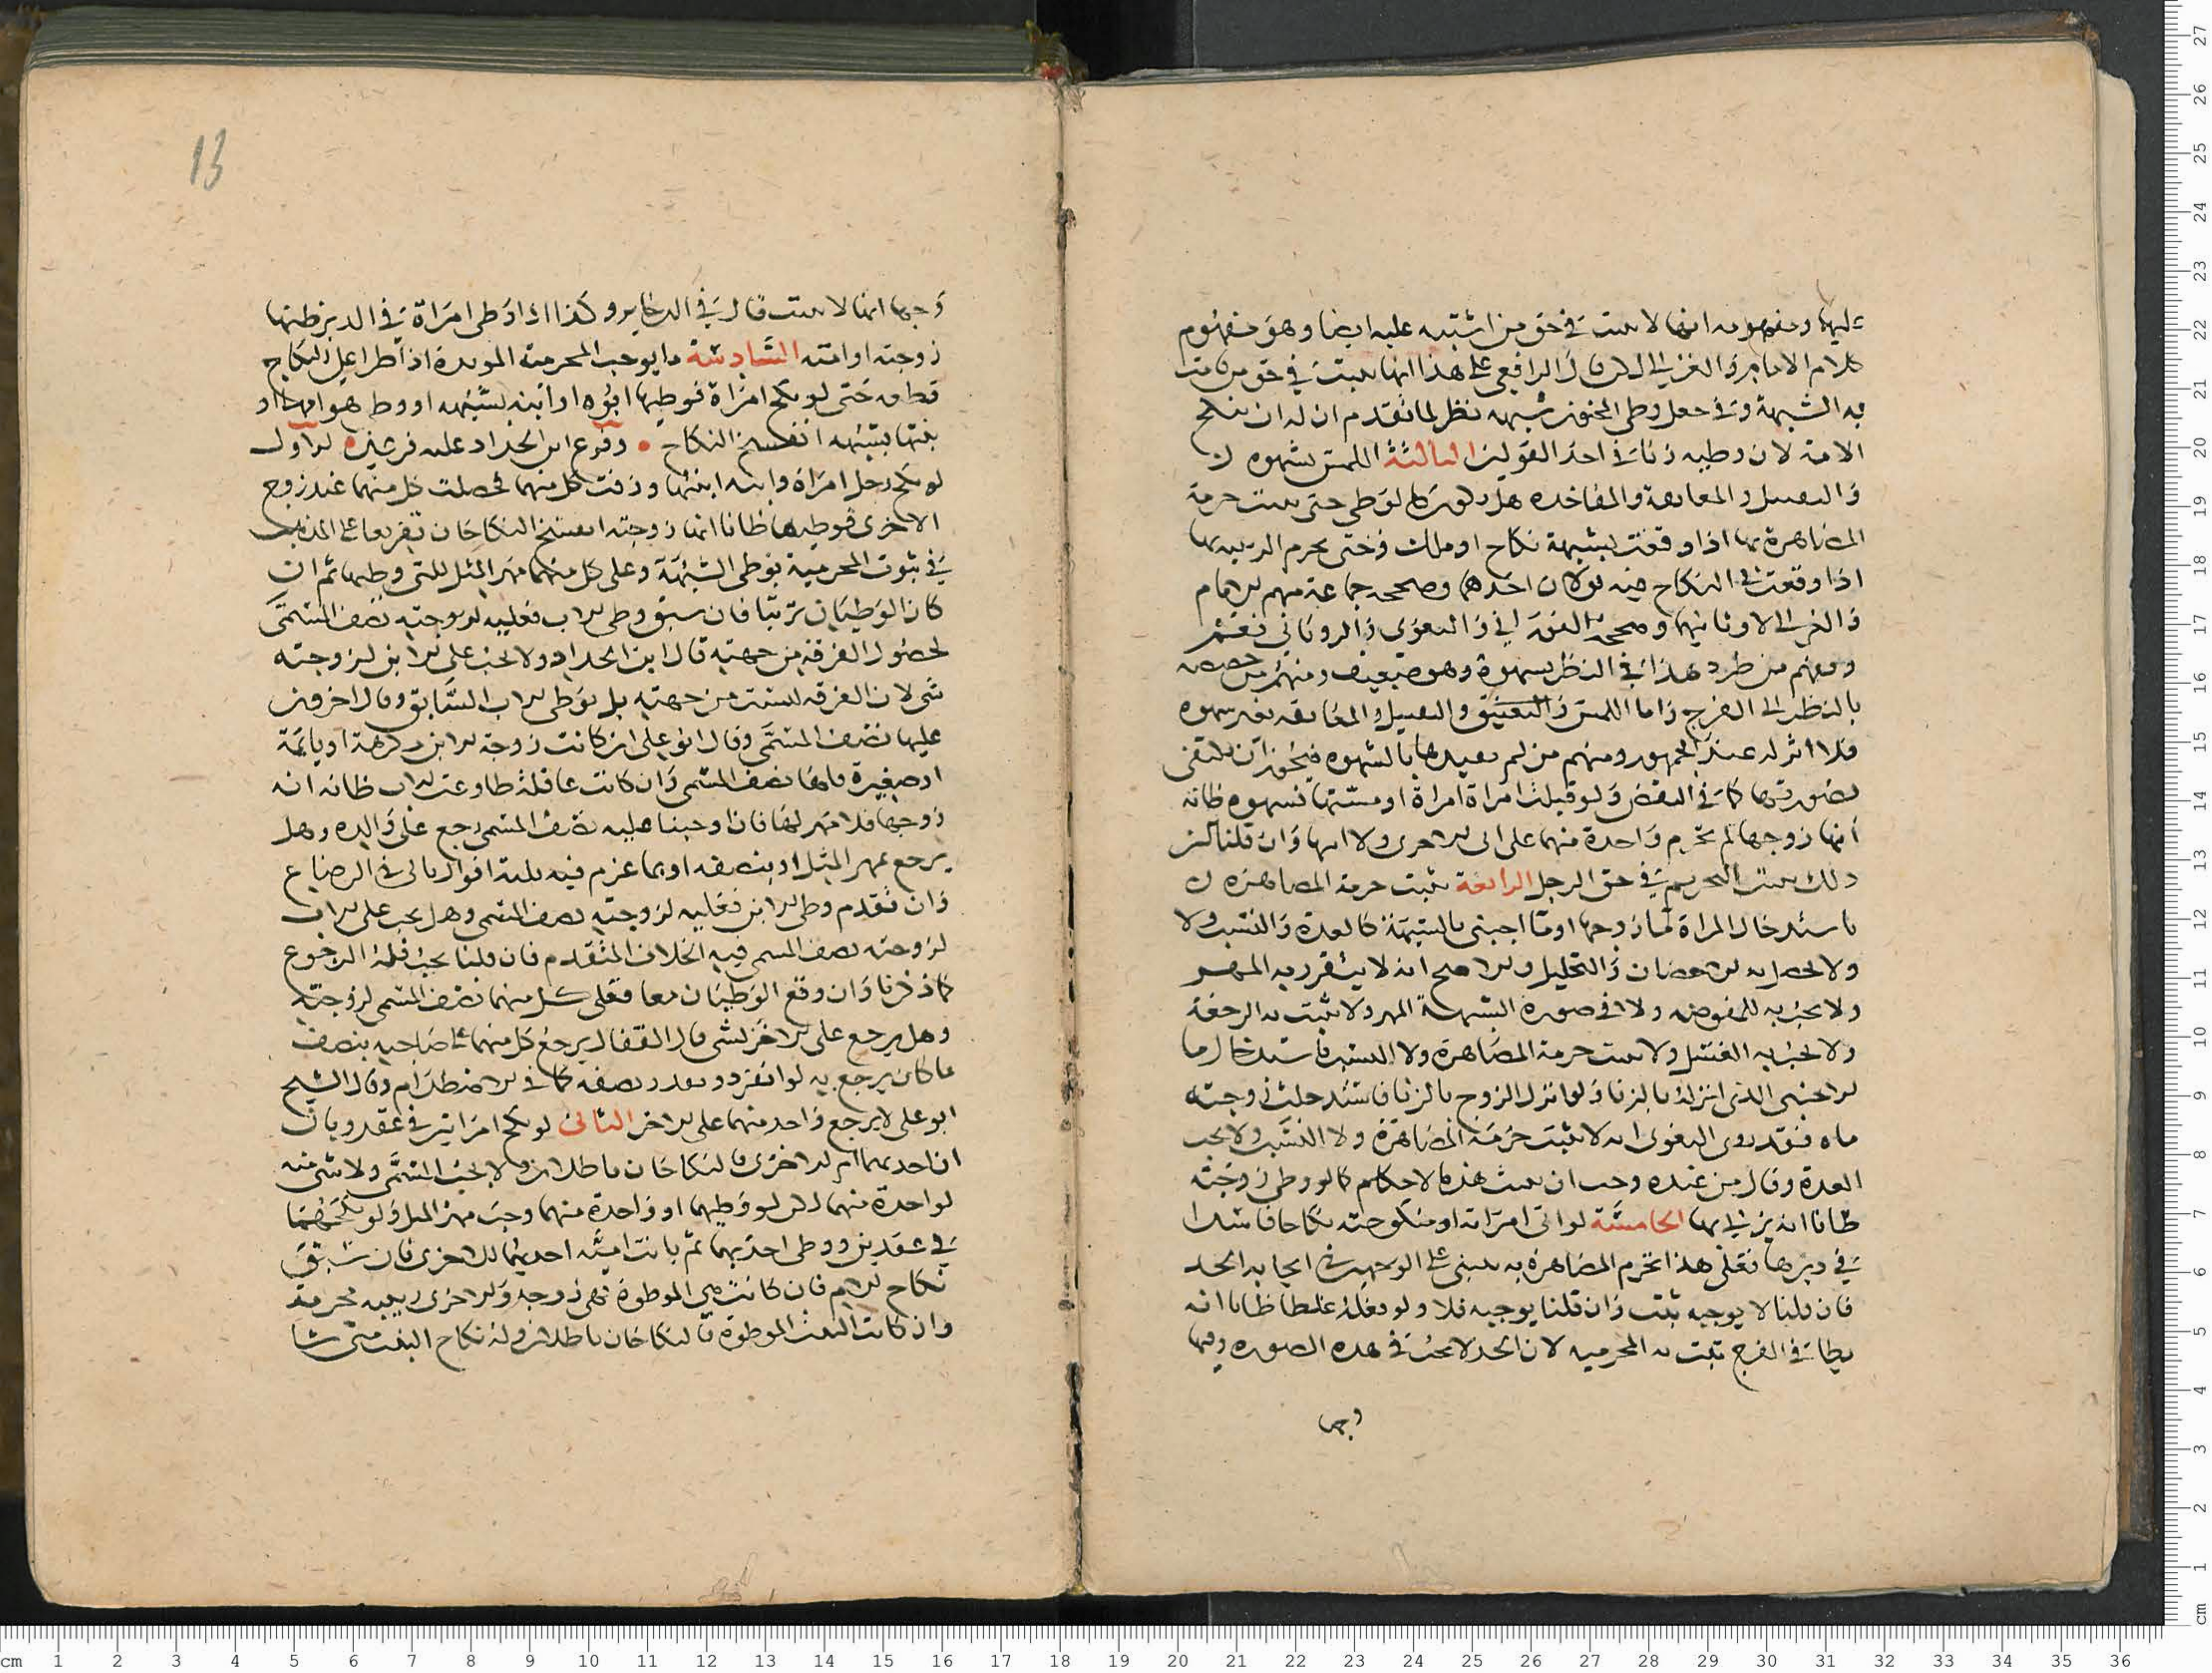 عليها ومفهومه انها لا تثبت في حق من اشتبه عليه ايضا وهو مفهوم
كلام الامام والغزالي لكن قال الرافعي على هذا انها تثبت في حق من قامت
به الشبهة وفي جعل وطى المجنون شبهه نظر لما تقدم ان له ان ينكح
الامة لان وطيه زنا في احد القولين الثالثة اللمس بشهوه
والتقبيل والمعانقة والمفاخده هل يكون كالوطى حتى تثبت حرمة
المصاهرة بها اذا وقعت بشبهة نكاح او ملك وحتى تحرم الربيبه بها
اذا وقعت في النكاح فيه قولان احدهما وصححه جماعة منهم الامام
والغزالي لا وثانيهما وصححه البغوي والروياني نعم
ومنهم من طرد هذا في النظر بشهوة وهو ضعيف ومنهم من خصصه
بالنظر الى الفرج واما اللمس والتقبيل والمعانقه بغير شهوه
فلا اثر له عند الجمهور ومنهم من لم يقيدها بالشهوه فيجوز ان يكتفى
بصورتها كما في النقض ولو قبلت امراة امراة او مستها بشهوه ظانه
انها زوجها لم تحرم واحدة منهما على الاخرى ولا ابنها وان قلنا
ذلك يثبت التحريم في حق الرجل الرابعة تثبت حرمة المصاهره
باستدخال المراة ماء زوجها او ماء اجنبي بالشبهة كالعدة والنسب ولا
ولا يحصل به الاحصان والتحليل والاصح انه لا يتقرر به المهر
ولا يجب به للمفوضه ولا في صورة الشبهة المهر ولا تثبت به الرجعة
ولا يجب به الغسل ولا تثبت حرمة المصاهرة ولا النسب باستدخال ما
الاجنبي الذي انزله بالزنا ولو انزل الزوج بالزنا فاستدخلت زوجته
ماه فقد روى البغوى انه لا تثبت حرمة المصاهرة ولا النسب ولا تجب
العدة وقال من عنده وجب ان تثبت هذه الاحكام كما لو وطى زوجته
ظانا انه يزني بها الخامسة لو اتى امراته او منكوحته نكاحا فاسدا
في دبرها فعلى هذا تحرم المصاهرة به يبنى على الوجهين في ايجابه الحد
فان قلنا لا يوجبه تثبت وان قلنا يوجبه فلا ولو فعله غلطا ظانا انه
يطا في الفرج تثبت به المحرميه لان الحد لا يجب في هذه الصوره وفيها
وجها
13
وجها انها لا تثبت قال في الدخاير وكذا اذا وطى امراة في الدبر ظنها
زوجته او امته السادسة ما يوجب المحرمية الموبدة اذا طرا على النكاح
قطعه حتى لو نكح امراة فوطيها ابوه او ابنه بشبهه او وطى هو امها او
بنتها بشبهه انفسخ النكاح وفرع ابن الحداد عليه فرعين الاول
لو نكح رجل امراة وابنه ابنتها وزفت كل منهما فحصلت كل منهما عند زوج
الاخرى فوطيها ظانا انها زوجته انفسخ النكاحان تفريعا على المذهب
في ثبوت المحرمية بوطى الشبهة وعلى كل منهما مهر المثل للتي وطيها ثم ان
كان الوطيان ترتبا فان سبق وطى الاب فعليه لزوجته نصف المسمى
لحصول الفرقة من جهته قال ابن الحداد ولا يجب على الابن لزوجته
شى لان الفرقه ليست من جهته بل بوطى الاب السابق وقال اخرون
عليها نصف المسمى وقال ابو على ان كانت زوجة الابن مكرهة او نايمة
او صغيرة فلها نصف المسمى وان كانت عاقلة طاوعت الاب ظانه انه
زوجها فلا مهر لها فان اوجبنا عليه نصف المسمى رجع على والده وهل
يرجع بمهر المثل او بنصفه او بما غرم فيه ثلثة اقوال تاتى في الرضاع
وان تقدم وطى الابن فعليه لزوجته نصف المسمى وهل يجب على الاب
لزوجته نصف المسمى فيه الخلاف المتقدم فان قلنا يجب فله الرجوع
كما ذكرنا وان وقع الوطيان معا فعلى كل منهما نصف المسمى لزوجته
وهل يرجع على الاخر بشى قال القفال يرجع كل منهما على صاحبه بنصف
ما كان يرجع به لو انفرد ويهدر نصفه كما في الاصطدام وقال الشيخ
ابو على لا يرجع واحد منهما على الاخر الثانى لو نكح امراتين في عقد وبان
ان احديهما ام الاخرى فالنكاحان باطلان ولا يجب المسمى ولا شى منه
لواحدة منهما لكن لو وطيهما او واحدة منهما وجب مهر المثل ولو نكحهما
في عقدين ووطى احديهما ثم بانت امية احديهما للاخرى فان سبق
نكاح الام فان كانت هي الموطوة فهي زوجه والاخرى ربيبه محرمة
وان كانت البنت الموطوة فالنكاحان باطلان وله نكاح البنت متى شا